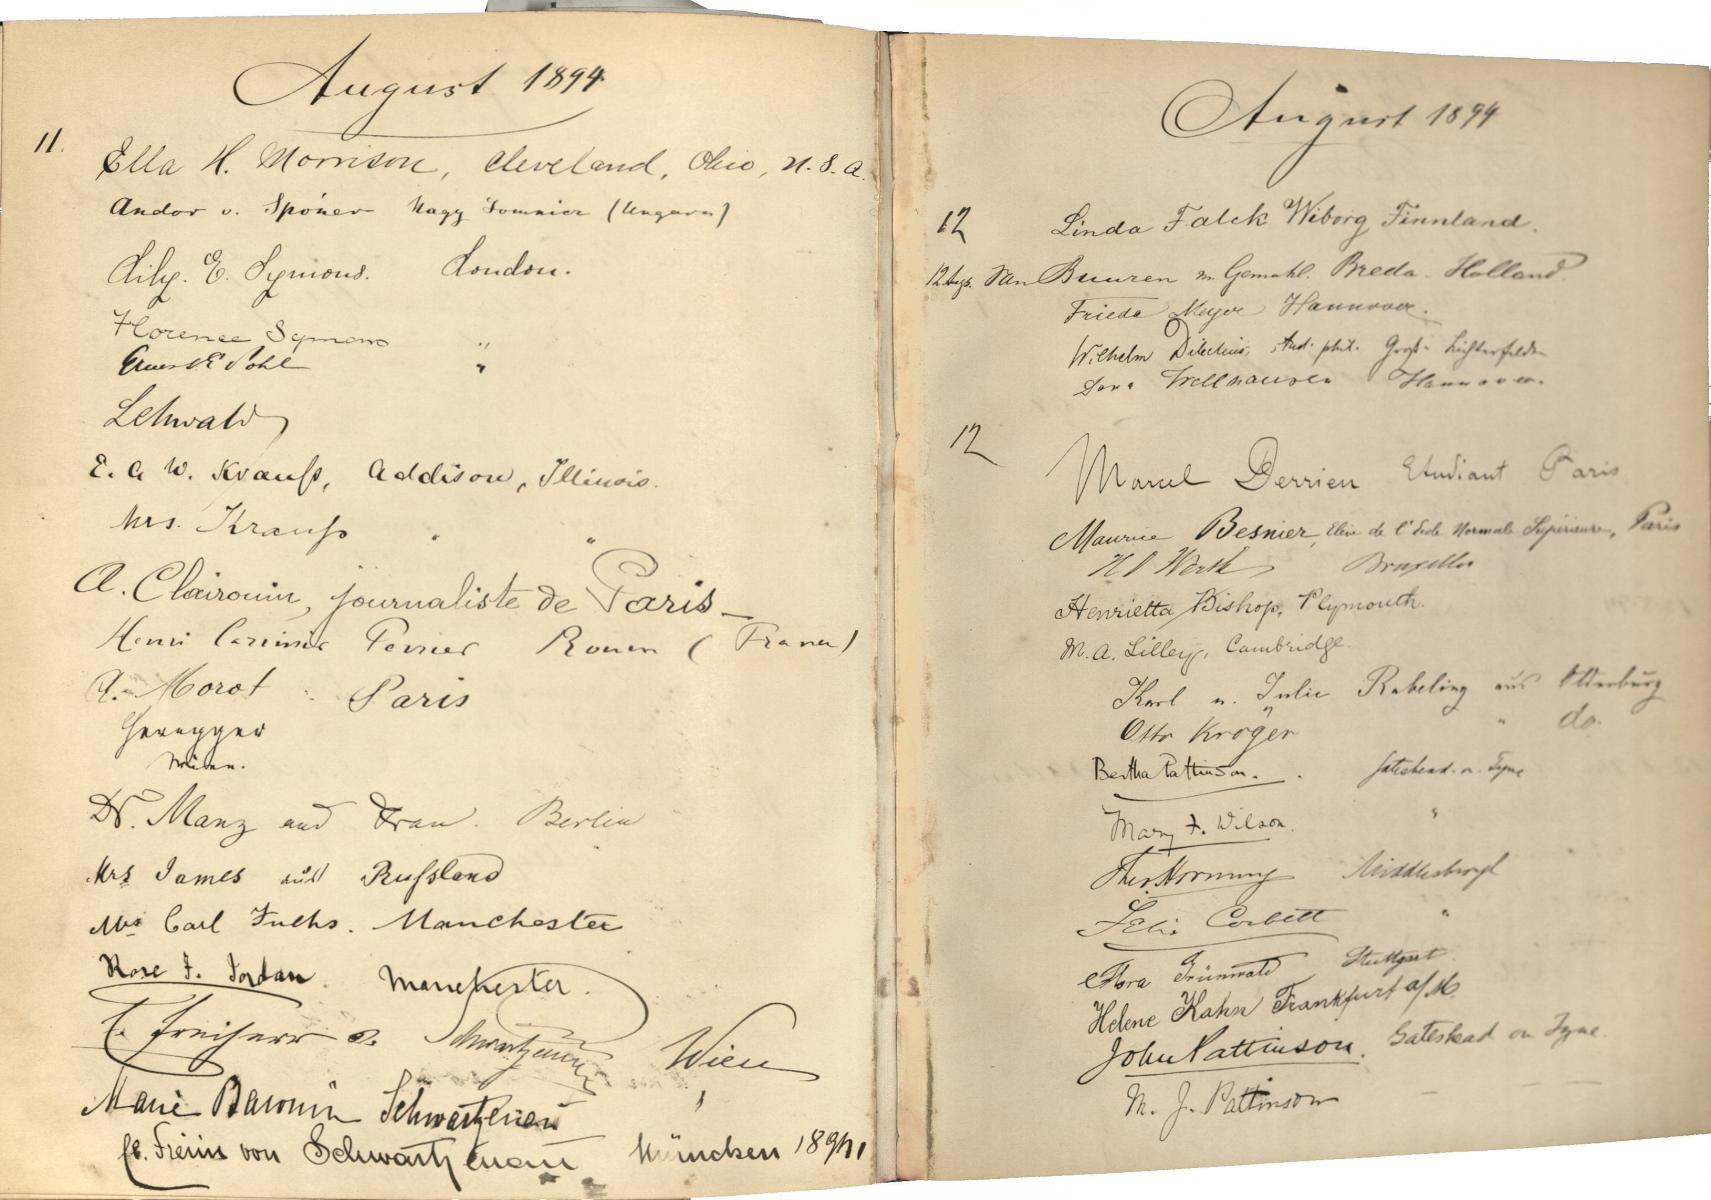 August 1894
11.
Ella H. Morrison, Cleveland, Ohio, U.S.A.
Andor v. Spóner Nagy Lomnicz (Ungarn)
Lily. E. Symons. London.
Florence Symons "
Ernest E Pohl "
Lehwald
E. A. W. Krauß, Addison, Illinois.
Mrs. Krauß " "
A. Clairouin, journaliste de Paris
Henri Casimir Perrier Rouen (France)
A. Morot Paris
Wien.
Dr. Manz und Frau. Berlin
Mrs James aus Rußland
Mrs Carl Fuchs. Manchester
Rose F. Jordan. Manchester.
Freiherr v. Schwartzenau Wien
Marie Baronin Schwartzenau "
Freiin von Schwartzenau München
August 1894
12 Linda Falck Wiborg Finnland.
12 Aug. Van Buuren m Gemahl. Breda - Holland
Frieda Meyer Hannover.
Wilhelm Dibelius, stud. phil. Groß-Lichterfelde
Dora Wellhausen Hannover.
12
Marcel Derrien Etudiant Paris
Maurice Besnier, Elève de l'Ecole Normale Supérieure, Paris
Werth Bruxelles
Henrietta Bishop, Plymouth.
M. A. Lilley, Cambridge.
Karl u. Julie Rabeling aus Oldenburg
Otto Kröger " do.
Bertha Pattinson. Gateshead on Tyne
Mary F. Wilson. "
Theo Hornung Middlesbrogh
Corbett "
Flora Grünwald Stuttgart
Helene Kahn Frankfurt a/M.
John Pattinson. Gateshead on Tyne.
M. J. Pattinson — —